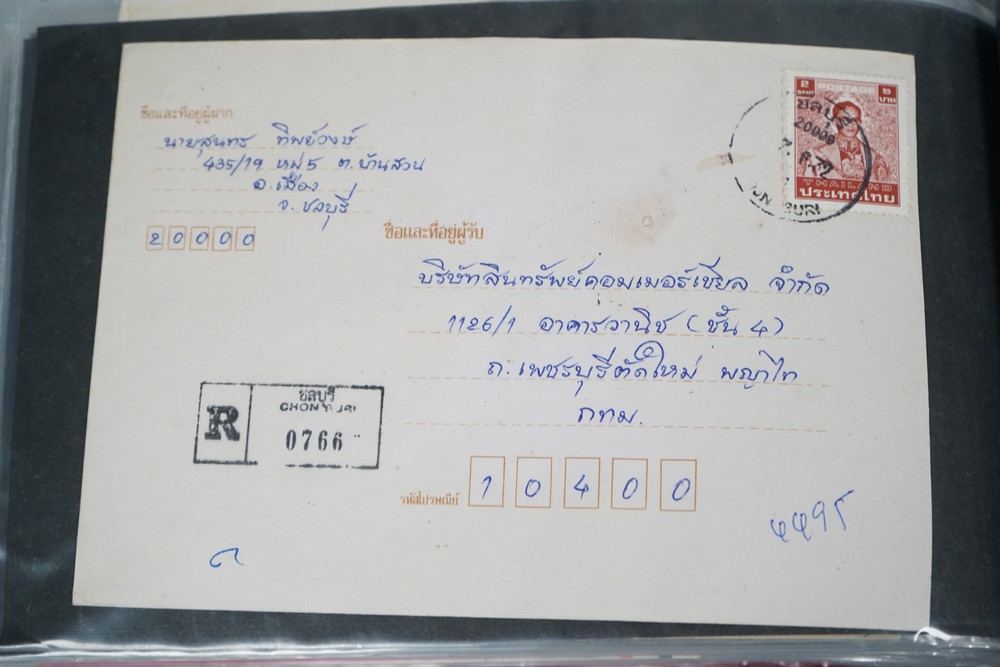 ชื่อและที่อยู่ผู้ฝาก
นายสุนทร ทิพย์วงษ์
435/19 หมู่ 5 ต.บ้านสวน
อ.เมือง
จ.ชลบุรี
20000
๒ BAHT POSTAGE ๒ บาท
THAILAND
ประเทศไทย
ชลบุรี
20000
ชื่อและที่อยู่ผู้รับ
บริษัทสินทรัพย์คอมเมอร์เชียล จำกัด
1126/1 อาคารวานิช (ชั้น 4)
ถ.เพชรบุรีตัดใหม่ พญาไท
กทม.
R
ชลบุรี
CHON BURI
0766
รหัสไปรษณีย์
10400